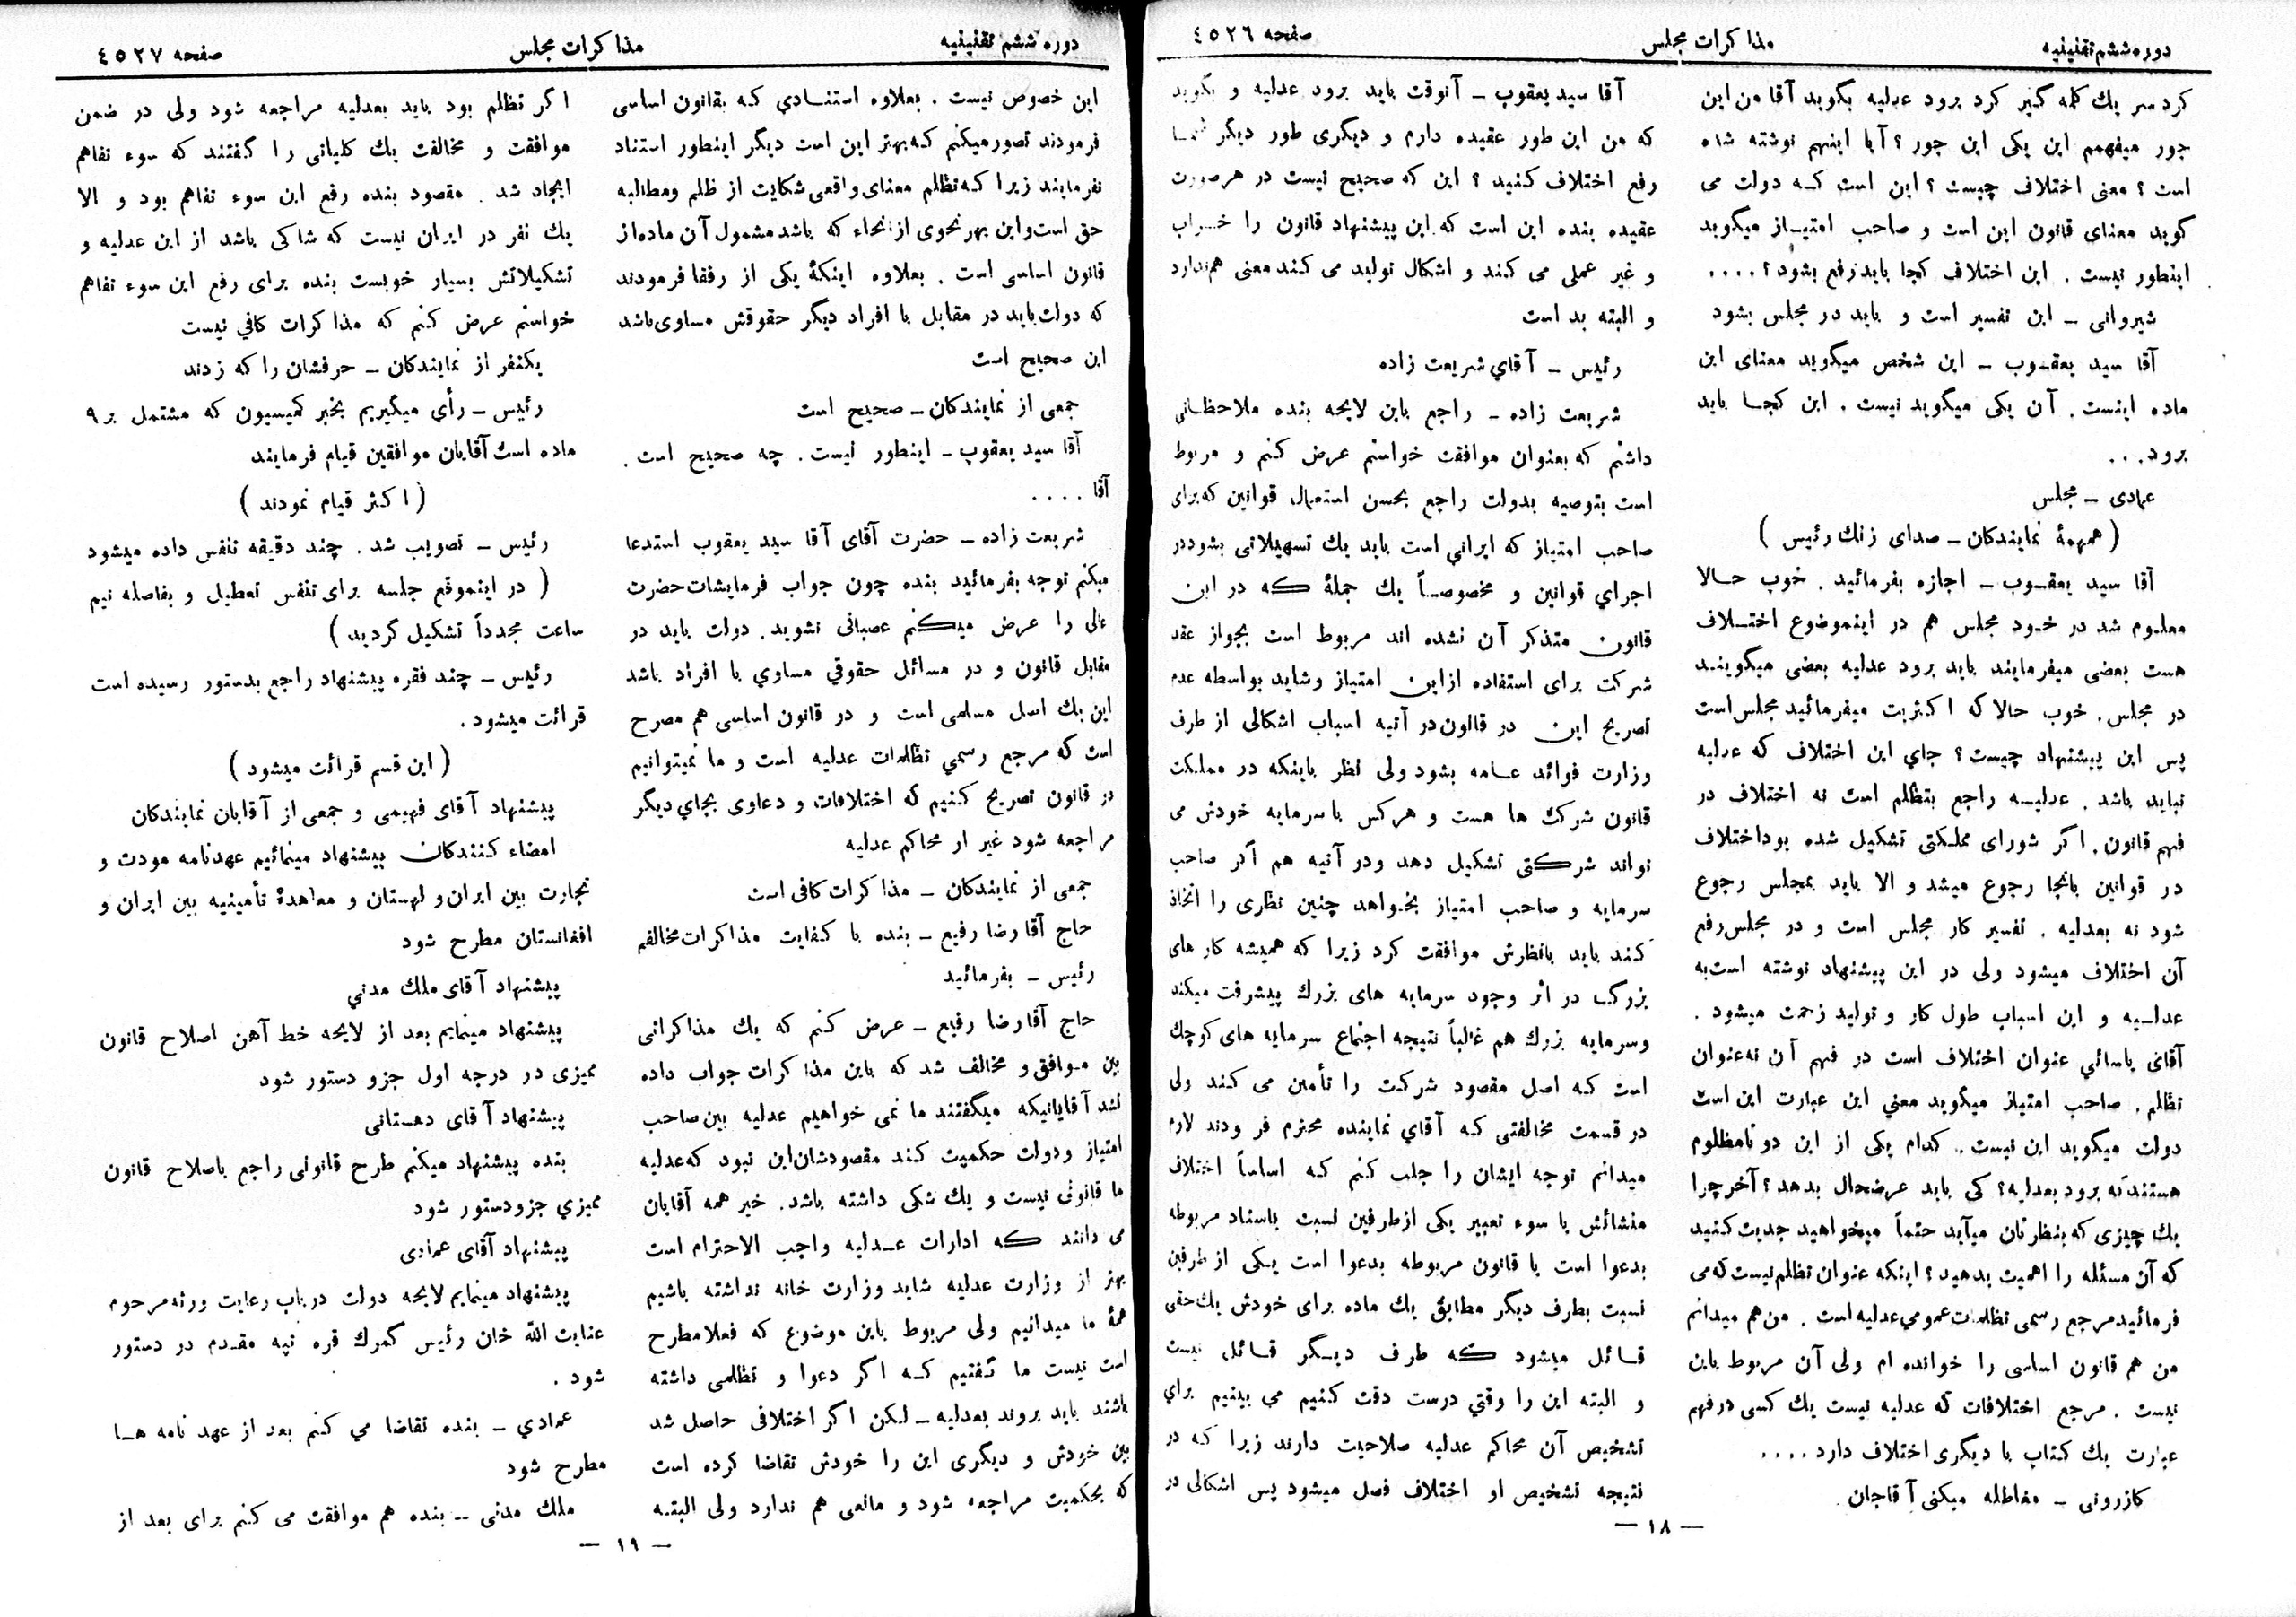 دوره ششم تقنینیه
مذاکرات مجلس
صفحه ٤٥٢٦
کرد سر یك کله گیر کرد برود عدلیه بگوید آقا من این
جور میفهمم این یکی این جور؟ آیا اینهم نوشته شده
است؟ معنی اختلاف چیست؟ این است که دولت می
گوید معنای قانون این است و صاحب امتیاز میگوید
اینطور نیست . این اختلاف کجا باید رفع بشود؟ ....
شیروانی ــ این تفسیر است و باید در مجلس بشود
آقا سید یعقوب ــ این شخص میگوید معنای این
ماده اینست . آن یکی میگوید نیست . این کجا باید
برود...
عمادی ــ مجلس
( همهمهٔ نمایندکان ــ صدای زنك رئیس )
آقا سید یعقوب ــ اجازه بفرمائید . خوب حالا
معلوم شد در خود مجلس هم در اینموضوع اختلاف
هست بعضی میفرمایند باید برود عدلیه بعضی میگویند
در مجلس . خوب حالا که اکثریت میفرمائید مجلس است
پس این پیشنهاد چیست؟ جاي این اختلاف که عدلیه
نباید باشد . عدلیه راجع بتظلم است نه اختلاف در
فهم قانون . اگر شورای مملکتي تشکیل شده بود اختلاف
در قوانین بانجا رجوع میشد و الا باید بمجلس رجوع
شود نه بعدلیه . تفسیر کار مجلس است و در مجلس رفع
آن اختلاف میشود ولی در این پیشنهاد نوشته است به
عدلیه و این اسباب طول کار و تولید زحمت میشود .
آقای یاسائي عنوان اختلاف است در فهم آن نه عنوان
تظلم . صاحب امتیاز میگوید معني این عبارت این است
دولت میگوید این نیست . کدام یکی از این دو تا مظلوم
هستند که برود بعدلیه؟ کی باید عرضحال بدهد؟ آخر چرا
یك چیزی که بنظرتان میآید حتماً میخواهید جدیت کنید
که آن مسئله را اهمیت بدهید؟ اینکه عنوان تظلم نیست که می
فرمائید مرجع رسمی تظلمات عمومي عدلیه است . من هم میدانم
من هم قانون اساسی را خوانده ام ولی آن مربوط باین
نیست . مرجع اختلافات که عدلیه نیست یك کسی در فهم
عبارت یك کتاب با دیگری اختلاف دارد ....
کازرونی ــ مغالطه میکنی آقاجان
آقا سید یعقوب ــ آنوقت باید برود عدلیه و بگوید
که من این طور عقیده دارم و دیگری طور دیگر شما
رفع اختلاف کنید؟ این که صحیح نیست در هر صورت
عقیده بنده این است که این پیشنهاد قانون را خراب
و غیر عملی می کند و اشکال تولید می کند معنی هم ندارد
و البته بد است
رئیس ــ آقاي شریعت زاده
شریعت زاده ــ راجع باین لایحه بنده ملاحظاتی
داشتم که بعنوان موافقت خواستم عرض کنم و مربوط
است بتوصیه بدولت راجع بحسن استعمال قوانین که برای
صاحب امتیاز که ایراني است باید یك تسهیلاتی بشود در
اجراي قوانین و مخصوصاً یك جملهٔ که در این
قانون متذکر آن نشده اند مربوط است بجواز عقد
شرکت برای استفاده از این امتیاز وشاید بواسطه عدم
تصریح این در قانون در آتیه اسباب اشکالی از طرف
وزارت فوائد عامه بشود ولی نظر باینکه در مملکت
قانون شرکت ها هست و هرکس با سرمایه خودش می
تواند شرکتی تشکیل دهد ودر آتیه هم اگر صاحب
سرمایه و صاحب امتیاز بخواهد چنین نظری را اتخاذ
کند باید بانظرش موافقت کرد زیرا که همیشه کار های
بزرگ در اثر وجود سرمایه های بزرك پیشرفت میکند
وسرمایه بزرك هم غالباً نتیجه اجتماع سرمایه های کوچك
است که اصل مقصود شرکت را تأمین می کند ولی
در قسمت مخالفتی که آقاي نماینده محترم فرمودند لازم
میدانم توجه ایشان را جلب کنم که اساساً اختلاف
منشائش یا سوء تعبیر یکی از طرفین نسبت باسناد مربوطه
بدعوا است یا قانون مربوطه بدعوا است یکی از طرفین
نسبت بطرف دیگر مطابق یك ماده برای خودش یك حقی
قائل میشود که طرف دیگر قائل نیست
و البته این را وقتي درست دقت کنیم می بینیم براي
تشخیص آن محاکم عدلیه صلاحیت دارند زیرا که در
نتیجه تشخیص او اختلاف فصل میشود پس اشکالی در
ــ ١٨ ــ
دوره ششم تقنینیه
مذاکرات مجلس
صفحه ٤٥٢٧
این خصوص نیست . بعلاوه استنادي که بقانون اساسی
فرمودند تصور میکنم که بهتر این است دیگر اینطور استناد
نفرمایند زیرا که تظلم معنای واقعی شکایت از ظلم ومطالبه
حق است و این بهر نحوی از انحاء که باشد مشمول آن ماده از
قانون اساسی است . بعلاوه اینکهٔ یکی از رفقا فرمودند
که دولت باید در مقابل با افراد دیگر حقوقش مساوی باشد
این صحیح است
جمعی از نمایندکان ــ صحیح است
آقا سید یعقوب ــ اینطور نیست . چه صحیح است .
آقا ....
شریعت زاده ــ حضرت آقای آقا سید یعقوب استدعا
میکنم توجه بفرمائید بنده چون جواب فرمایشات حضرت
عالی را عرض میکنم عصبانی نشوید . دولت باید در
مقابل قانون و در مسائل حقوقي مساوي با افراد باشد
این یك اصل مسلمی است و در قانون اساسی هم مصرح
است که مرجع رسمي تظلمات عدلیه است و ما نمیتوانیم
در قانون تصریح کنیم که اختلافات و دعاوی بجاي دیگر
مراجعه شود غیر از محاکم عدلیه
جمعی از نمایندکان ــ مذاکرات کافی است
حاج آقا رضا رفیع ــ بنده با کفایت مذاکرات مخالفم
رئیس ــ بفرمائید
حاج آقا رضا رفیع ــ عرض کنم که یك مذاکراتی
بین موافق و مخالف شد که باین مذاکرات جواب داده
نشد آقایانیکه میگفتند ما نمی خواهیم عدلیه بین صاحب
امتیاز ودولت حکمیت کند مقصودشان این نبود که عدلیه
ما قانونی نیست و یك شکی داشته باشد . خیر همه آقایان
می دانند که ادارات عدلیه واجب الاحترام است
بهتر از وزارت عدلیه شاید وزارت خانه نداشته باشیم
همهٔ ما میدانیم ولی مربوط باین موضوع که فعلا مطرح
است نیست ما گفتیم که اگر دعوا و تظلمی داشته
باشند باید بروند بعدلیه ــ لکن اگر اختلافی حاصل شد
بین خودش و دیگری این را خودش تقاضا کرده است
که بحکمیت مراجعه شود و مانعی هم ندارد ولی البته
اگر تظلم بود باید بعدلیه مراجعه شود ولی در ضمن
موافقت و مخالفت یك کلیاتی را گفتند که سوء تفاهم
ایجاد شد . مقصود بنده رفع این سوء تفاهم بود و الا
یك نفر در ایران نیست که شاکی باشد از این عدلیه و
تشکیلاتش بسیار خوبست بنده برای رفع این سوء تفاهم
خواستم عرض کنم که مذاکرات کافي نیست
یکنفر از نمایندکان ــ حرفشان را که زدند
رئیس ــ رأی میگیریم بخبر کمیسیون که مشتمل بر ٩
ماده است آقایان موافقین قیام فرمایند
( اکثر قیام نمودند )
رئیس ــ تصویب شد . چند دقیقه تنفس داده میشود
( در اینموقع جلسه برای تنفس تعطیل و بفاصله نیم
ساعت مجدداً تشکیل گردید )
رئیس ــ چند فقره پیشنهاد راجع بدستور رسیده است
قرائت میشود .
( این قسم قرائت میشود )
پیشنهاد آقای فهیمی و جمعی از آقایان نمایندکان
امضاء کنندکان پیشنهاد مینمائیم عهدنامه مودت و
تجارت بین ایران و لهستان و معاهدهٔ تأمینیه بین ایران و
افغانستان مطرح شود
پیشنهاد آقای ملك مدني
پیشنهاد مینمایم بعد از لایحه خط آهن اصلاح قانون
ممیزی در درجه اول جزو دستور شود
پیشنهاد آقای دهستانی
بنده پیشنهاد میکنم طرح قانونی راجع باصلاح قانون
ممیزي جزودستور شود
پیشنهاد آقای عمادی
پیشنهاد مینمایم لایحه دولت در باب رعایت ورثه مرحوم
عنایت الله خان رئیس گمرك قره تپه مقدم در دستور
شود .
عمادي ــ بنده تقاضا می کنم بعد از عهد نامه ها
مطرح شود
ملك مدنی ــ بنده هم موافقت می کنم برای بعد از
ــ ١٩ ــ